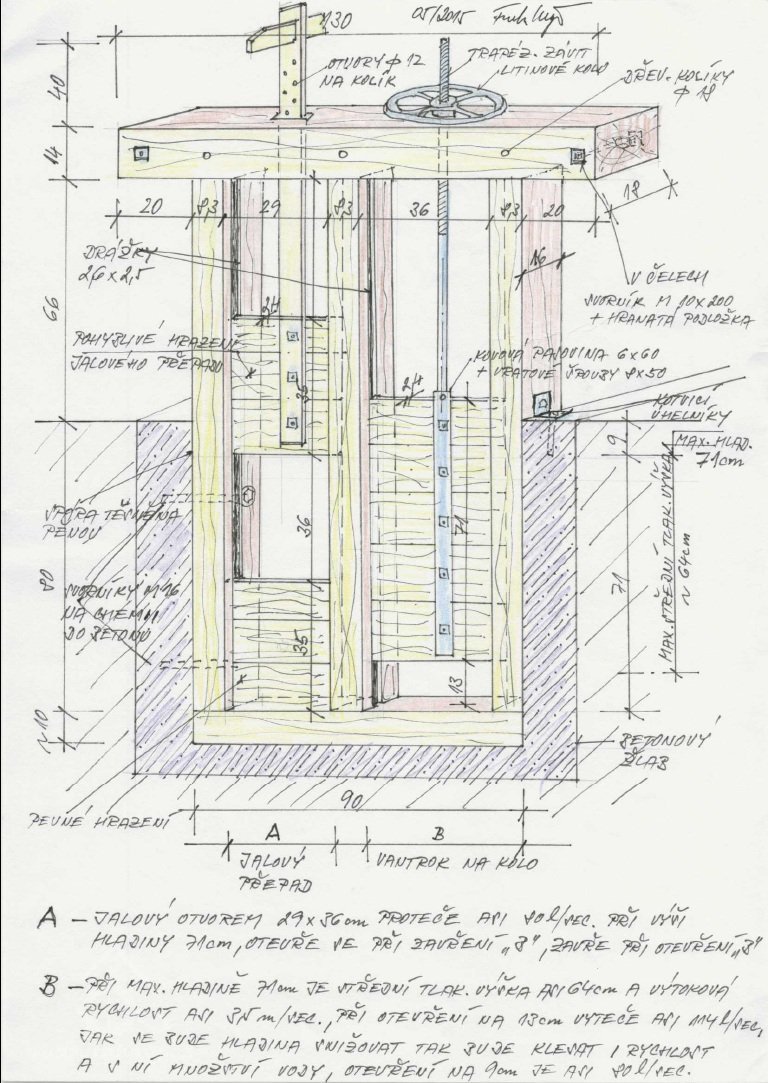 130
05/2015
OTVORY Φ 12
NA KOLÍK
TRAPÉZ. ZÁVIT
LITINOVÉ KOLO
DŘEV. KOLÍKY
Φ 18
40
14
66
80
~10
20
8,3
29
8,3
36
8,3
20
18
16
DRÁŽKY
2,6 x 2,5
V ČELECH
SVORNÍK M 10x200
+ HRANATÁ PODLOŽKA
24
POHYBLIVÉ HRAZENÍ
JALOVÉHO PŘEPADU
35
KOVOVÁ PASOVINA 6x60
+ VRATOVÉ ŠROUBY 8x50
24
KOTVÍCÍ
ÚHELNÍKY
9
MAX. HLAD.
71cm
SPÁRA TĚSNĚNA
PĚNOU
36
71
71
MAX. STŘEDNÍ TLAK. VÝŠKA
~ 64cm
SVORNÍKY M 16
NA CHEMII
DO BETONU
35
13
BETONOVÝ
ŽLAB
PEVNÉ HRAZENÍ
90
A
B
JALOVÝ
PŘEPAD
VANTROK NA KOLO
A – JALOVÝ OTVOREM 29x36cm PROTEČE ASI 80 l/SEC. PŘI VÝŠI
HLADINY 71cm, OTEVŘE SE PŘI ZAVŘENÍ „B", ZAVŘE PŘI OTEVŘENÍ „B"
B – PŘI MAX. HLADINĚ 71cm JE STŘEDNÍ TLAK. VÝŠKA ASI 64cm A VÝTOKOVÁ
RYCHLOST ASI 3,5 m/SEC., PŘI OTEVŘENÍ NA 13cm VYTEČE ASI 114 l/SEC,
JAK SE BUDE HLADINA SNIŽOVAT TAK BUDE KLESAT I RYCHLOST
A S NÍ MNOŽSTVÍ VODY, OTEVŘENÍ NA 9cm JE ASI 80 l/SEC.